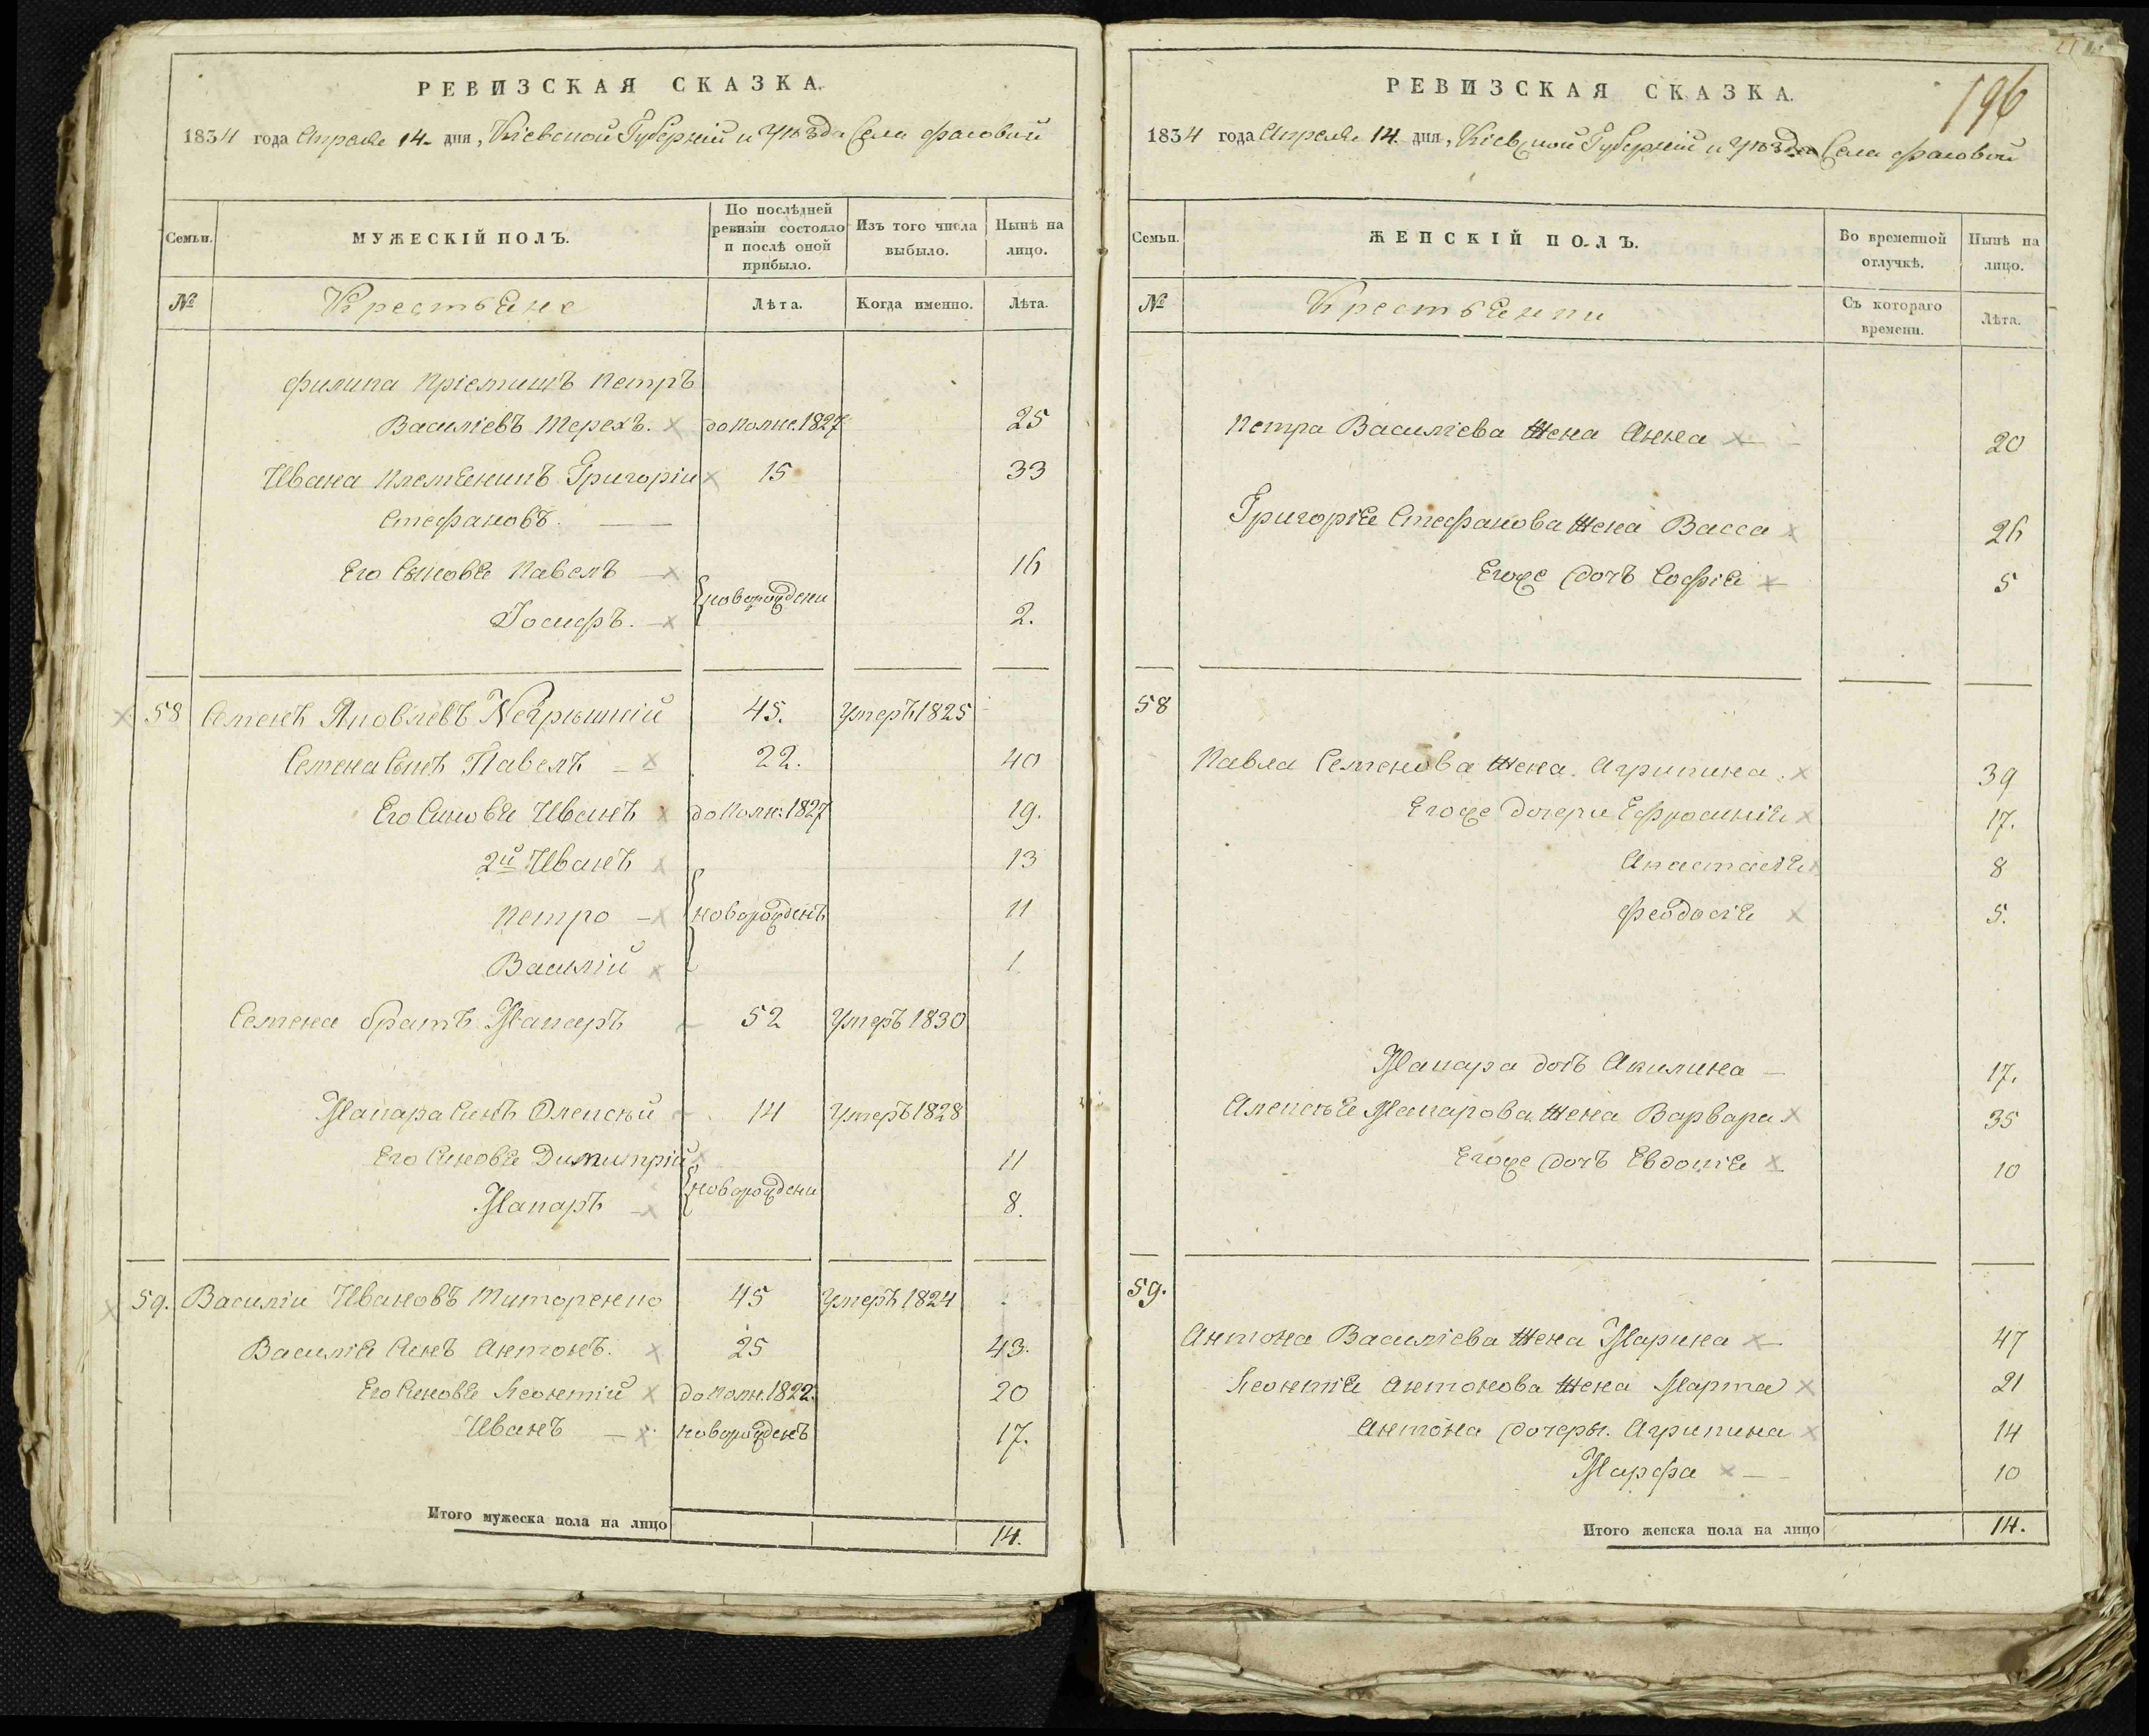 РЕВИЗСКАЯ СКАЗКА.
1834 года Апреля 14. дня, Кіевской Губерніи и Уѣзда Села Фасовой
Семьи.
МУЖЕСКІЙ ПОЛЪ.
По послѣдней ревизіи состояло и послѣ оной прибыло.
Изъ того числа выбыло.
Нынѣ на лицо.
№
Крестьяне
Лѣта.
Когда именно.
Лѣта.
Филипа пріемишъ Петръ
Василіевъ Терехъ. до полне. 1827 25
Ивана племяникъ Григоріи 15 33
Стефановъ.
Его Сыновя Павелъ 16
новорождени
Іосифъ. 2.
58 Семенъ Яковлевъ 45. Умеръ 1825
Семена Сынъ Павелъ 22. 40
Его Синовя Иванъ до полн: 1827 19.
2й Иванъ 13
Петро новорожденъ 11
Василій 1
Семена братъ Макаръ 52 Умеръ 1830
Макара Синъ Олексѣй 14 Умеръ 1828
Его Синовя Димитрій 11
новорождени
Макаръ 8.
59. Василіи Ивановъ Титоренко 45 Умеръ 1824
Василія Синъ Антонъ. 25 43.
Его Синовя Леонтій до полн. 1822. 20
Иванъ новорожденъ 17.
Итого мужеска пола на лицо 14.
196
РЕВИЗСКАЯ СКАЗКА.
1834 года Апреля 14. дня, Кіевской Губерніи и Уѣзда Села Фасовой
Семьи.
ЖЕНСКІЙ ПОЛЪ.
Во временной отлучкѣ.
Нынѣ на лицо.
№
Крестьянки
Съ котораго времени.
Лѣта.
Петра Василіева жена Анна 20
Григорія Стефанова жена Васса 26
Егоже дочъ Софія 5
58
Павла Семенова жена Агрипина 39
Егоже дочери Ефросинія 17.
Анастасія 8
Феодосія 5.
Макара дочъ Акилина 17.
Алексѣя Макарова жена Варвара 35
Егоже дочъ Евдокія 10
59.
Антона Василіева жена Марина 47
Леонтія Антонова жена Марта 21
Антона дочеры. Агрипина 14
Марфа 10
Итого женска пола на лицо 14.